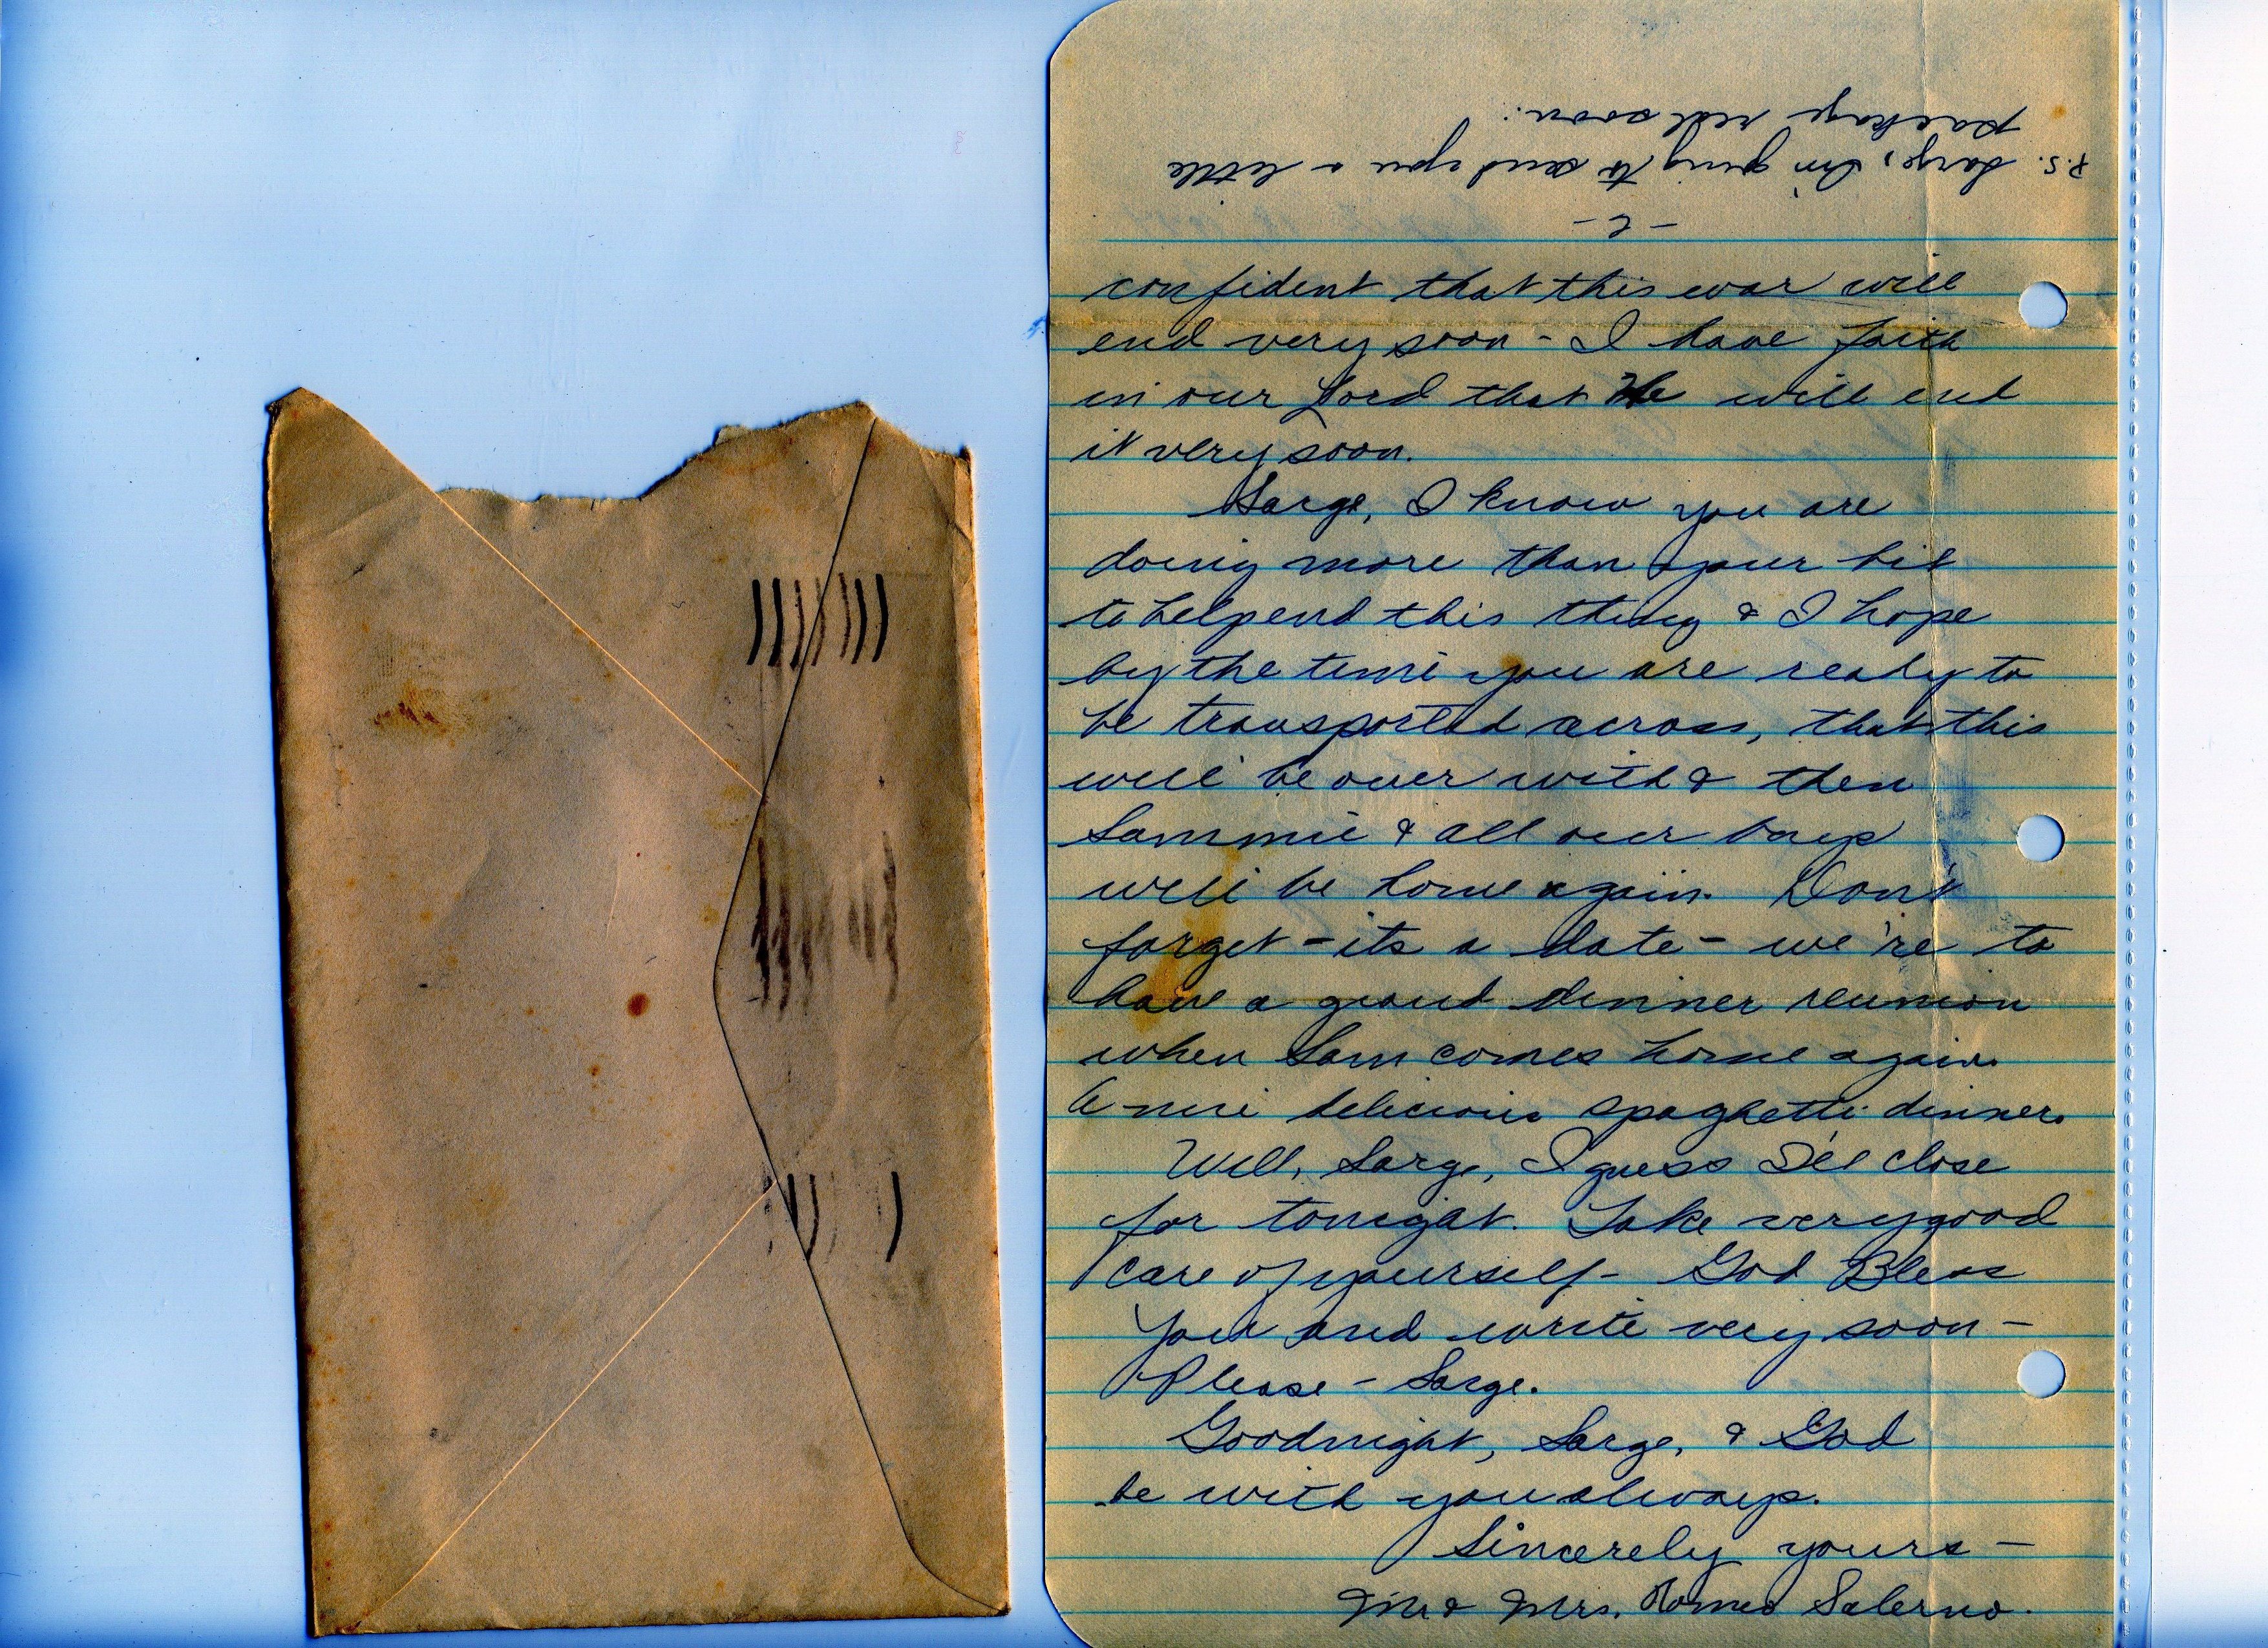 -2-
confident that this war will
end very soon - I have faith
in our Lord that He will end
it very soon.
Sarge, I know you are
doing more than your bit
to help end this thing & I hope
by the time you are ready to
be transported across, that this
will be over with & then
Sammie & all our boys
will be home again. Don't
forget - its a date - we're to
have a grand dinner reunion
when Sam comes home again.
A nice delicious spaghetti dinner.
Well, Sarge, I guess I'll close
for tonight. Take very good
care of yourself - God Bless
You and write very soon -
Please - Sarge.
Goodnight, Sarge, & God
be with you always.
Sincerely yours -
Mr & Mrs. Romeo Salerno.
P.S. Sarge, I'm going to send you a little
package real soon.